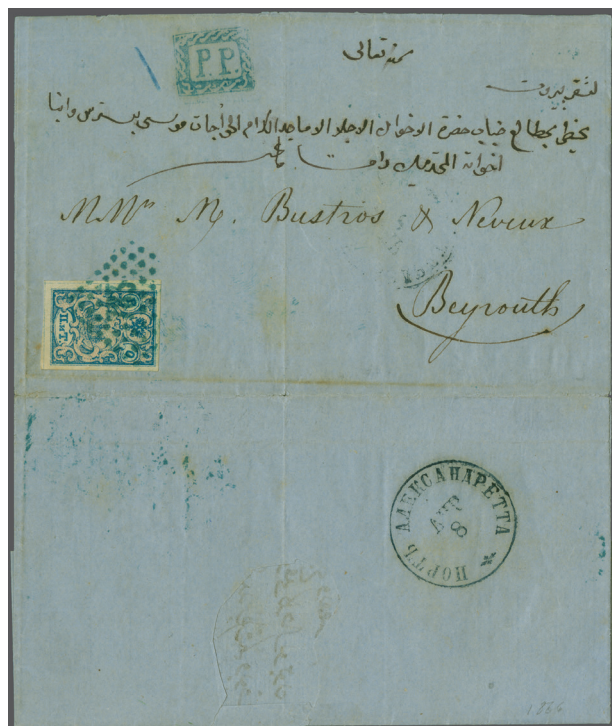 P.P.
بمنه تعالى
لثغر بيروت
يحظى بمطالع جناب حضرة الاخوان الاجلاء الاماجد الكرام الخواجات موسى بسترس وابنا
اخوانه المحترمين
MMrs M. Bustros & Neveux
Beyrouth
ПОРТЪ АЛЕКСАНДРЕТТА
АПР
8
1866